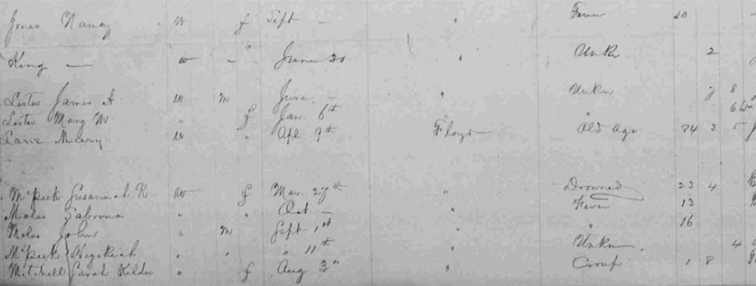 Jones Nancy w f Sept — " Fever 40
King — w — " June 20 " Unkn 2
Lester James A w m June — Unkn 8
Lester Mary M f Jan. 6th "
Lane Mary w " Apl 9th Floyd Old Age 74 3 5
McPeek Susannah R w f Mar. 27th " Drowned 23 4
Moles " " Oct — " Fever 13
Moles John " m Sept 1st " " 16
McPeek Hezekiah " " " 11th " Unkn 4
Mitchell Sarah " f Aug 3" " Croup 1 8